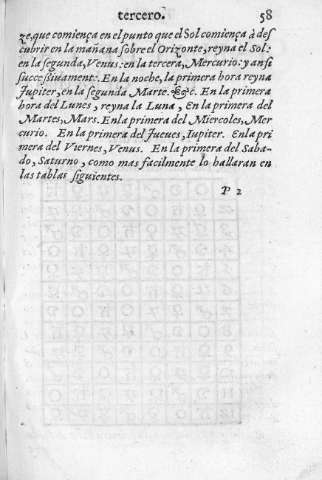 tercero. 58
ze, que comiença en el punto que el Sol comiença à des
cubrir en la mañana sobre el Orizonte, reyna el Sol:
en la segunda, Venus: en la tercera, Mercurio: y ansi
successiuamente. En la noche, la primera hora reyna
Iupiter, en la segunda Marte. &c. En la primera
hora del Lunes, reyna la Luna, En la primera del
Martes, Mars. En la primera del Miercoles, Mer
curio. En la primera del Jueues, Iupiter. En la pri
mera del Viernes, Venus. En la primera del Saba-
do, Saturno, como mas facilmente lo hallaran en
las tablas siguientes.
P 2